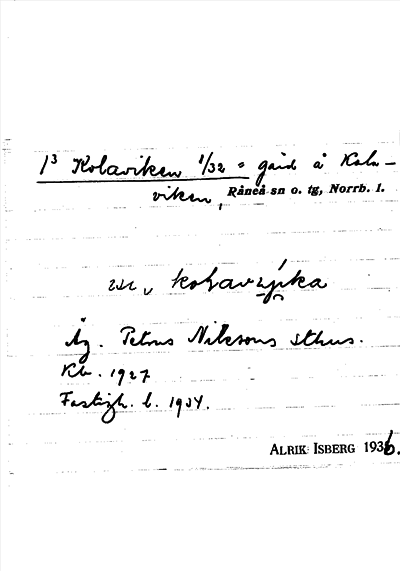 1³ Kolaviken 1/32 = gård å Kola-
viken, Råneå sn o. tg, Norrb. l.
Äg. Petrus Nilssons sthus.
Kb. 1927
Fastigh. l. 1934.
ALRIK ISBERG 1936.